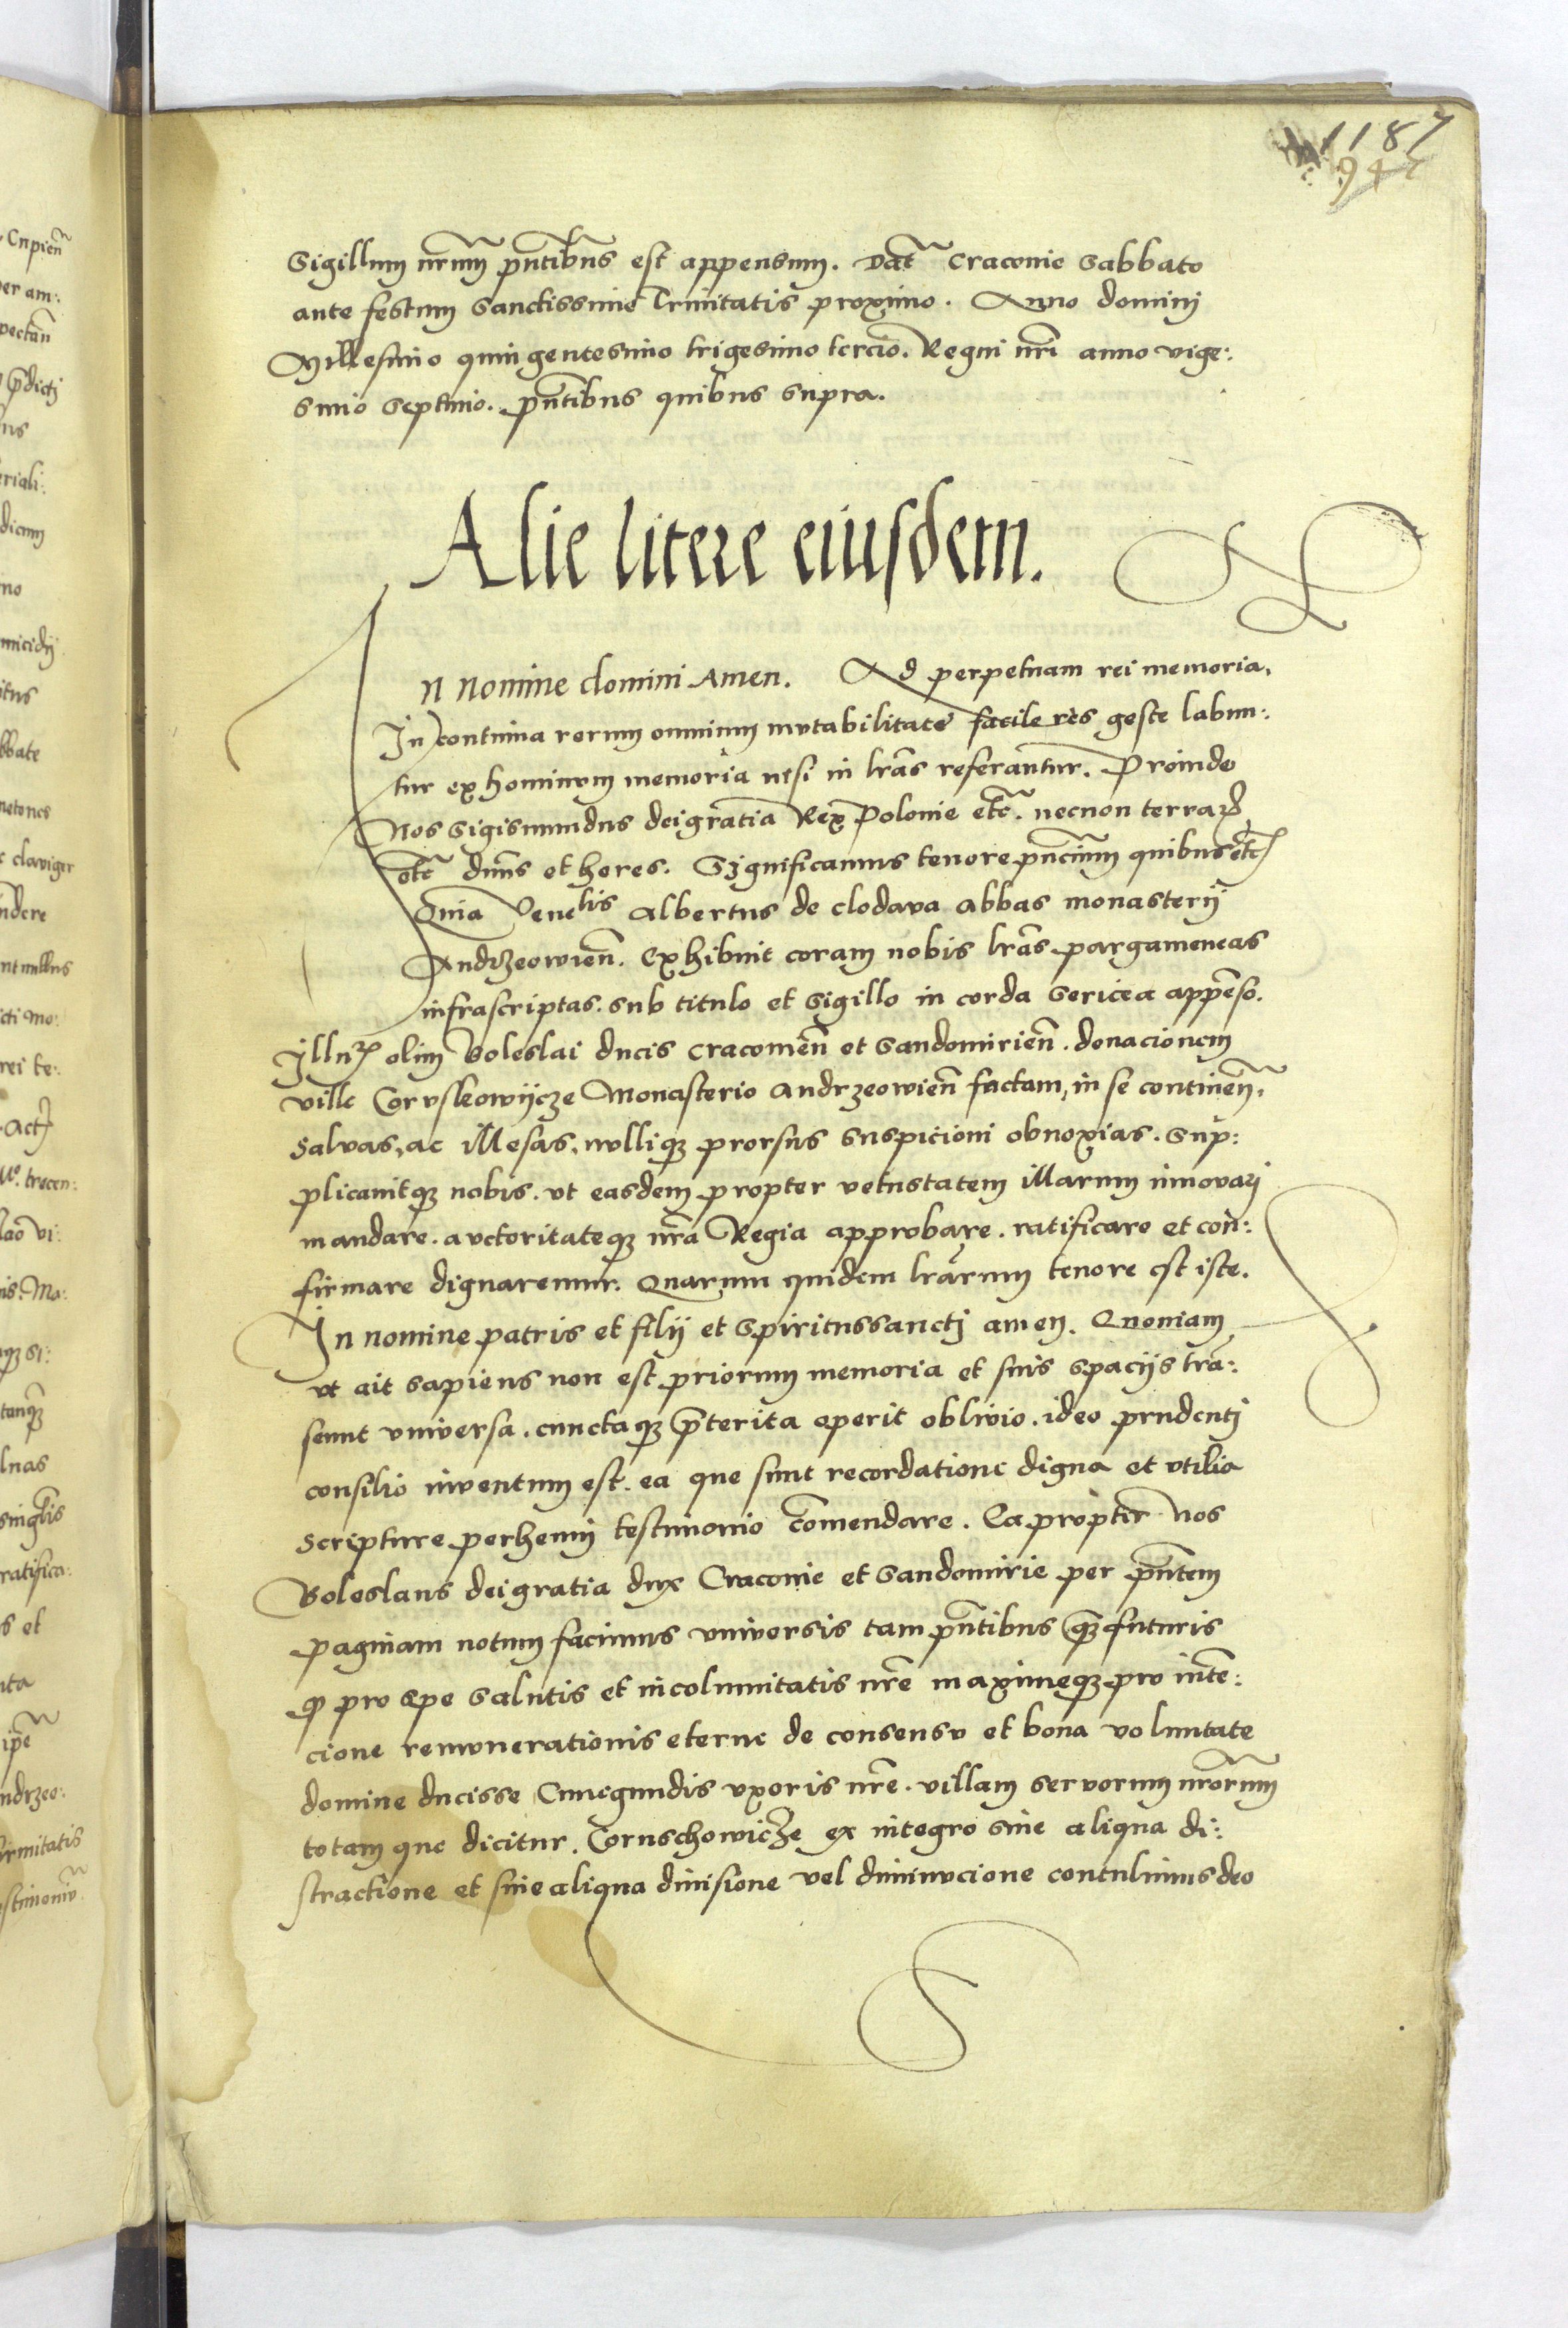 1187
947
Sigillum nrum pntibus est appensum. Dat Craconie Sabbato
ante festum Sanctissime Trinitatis proximo. Anno domini
Millesimo quingentesimo trigesimo tercio. Regni nri anno vige:
simo septimo. pntibus quibus supra.
Alie litere eiusdem.
In nomine domini Amen. Ad perpetuam rei memoria.
In continua rerum omnium mutabilitate facile res geste labun:
tur ex hominum memoria nisi in lras referantur. Proinde
Nos Sigismundus dei gratia Rex Polonie etc. necnon terrar
etc dnus et heres. Significamus tenore pncium quibus etc
Quia Venelis Albertus de Clodava Abbas monasterij
Andrzeowien. Exhibuit coram nobis lras pargameneas
infrascriptas. sub titulo et sigillo in corda sericea appenso.
Illur olim Boleslai ducis Cracovien et Sandomirien. donacionem
ville Coruskowijcze Monasterio Andrzeowien factam, in se continen.
Salvas, ac illesas, nulliq prorsus suspicioni obnoxias. Sup:
plicavitq nobis. ut easdem propter vetustatem illarum innovari
mandare. auctoritateq nra Regia approbare. ratificare et con:
firmare dignaremur. Quarum quidem lrarum tenore est iste.
In nomine patris et filij et Spiritussancti amen. Quoniam
ut ait sapiens non est priorum memoria et suis spacijs tran:
seunt universa. cunctaq pterita operit oblivio. ideo prudenti
consilio inventum est. ea que sunt recordatione digna et utilia
Scripture perhenni testimonio comendare. Ea propter nos
Boleslaus dei gratia dux Craconie et Sandomirie per pntem
paginam notum facimus universis tam pntibus q futuris
q pro spe salutis et incolumitatis nre maximeq pro inten:
cione remunerationis eterne de consensu et bona voluntate
domine ducisse Cunegundis uxoris nre. villam servorum nrorum
totam que dicitur. Coruschowicze ex integro sine aliqua di:
stractione et sine aliqua divisione vel diminucione contulimus deo